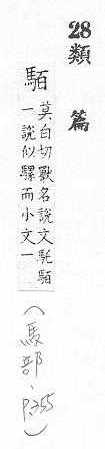 28類篇
䮀
莫白切獸名說文駞䮀
一說似騾而小文一
(馬部、P.355)